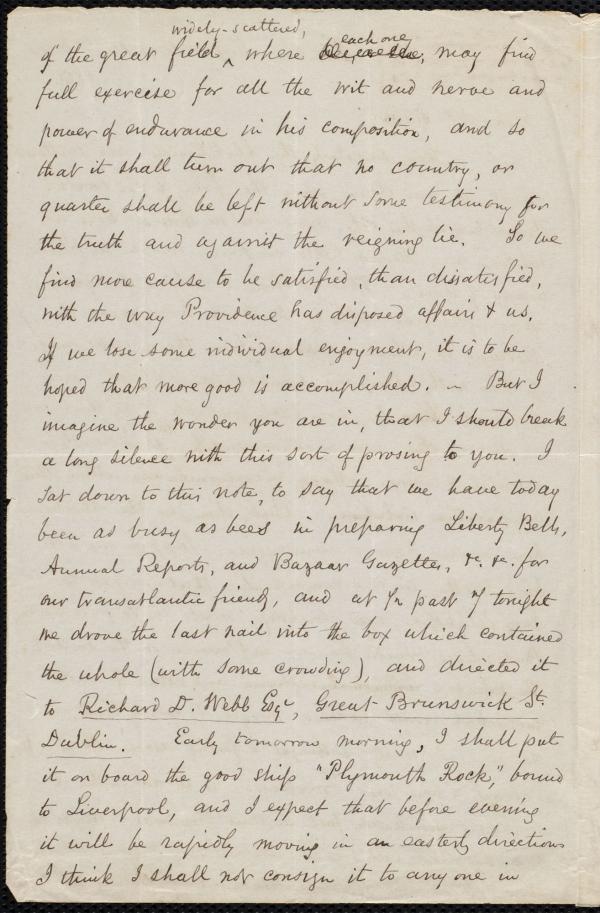 widely-scattered,
each one
of the great field ^ where may find
full exercise for all the wit and nerve and
power of endurance in his composition, and so
that it shall turn out that no country, or
quarter shall be left without some testimony for
the truth and against the reigning lie. So we
find more cause to be satisfied, than dissatisfied,
with the way Providence has disposed affairs & us.
If we lose some individual enjoyment, it is to be
hoped that more good is accomplished. – But I
imagine the wonder you are in, that I should break
a long silence with this sort of prosing to you. I
sat down to this note, to say that we have today
been as busy as bees in preparing Liberty Bells,
Annual Reports, and Bazaar Gazettes, &c. &c. for
our transatlantic friends, and at 1/2 past 7 tonight
we drove the last nail into the box which contained
the whole (with some crowding), and directed it
to Richard D. Webb Esqr, Great Brunswick St.
Dublin. Early tomorrow morning, I shall put
it on board the good ship "Plymouth Rock," bound
to Liverpool, and I expect that before evening
it will be rapidly moving in an easterly direction.
I think I shall not consign it to any one in